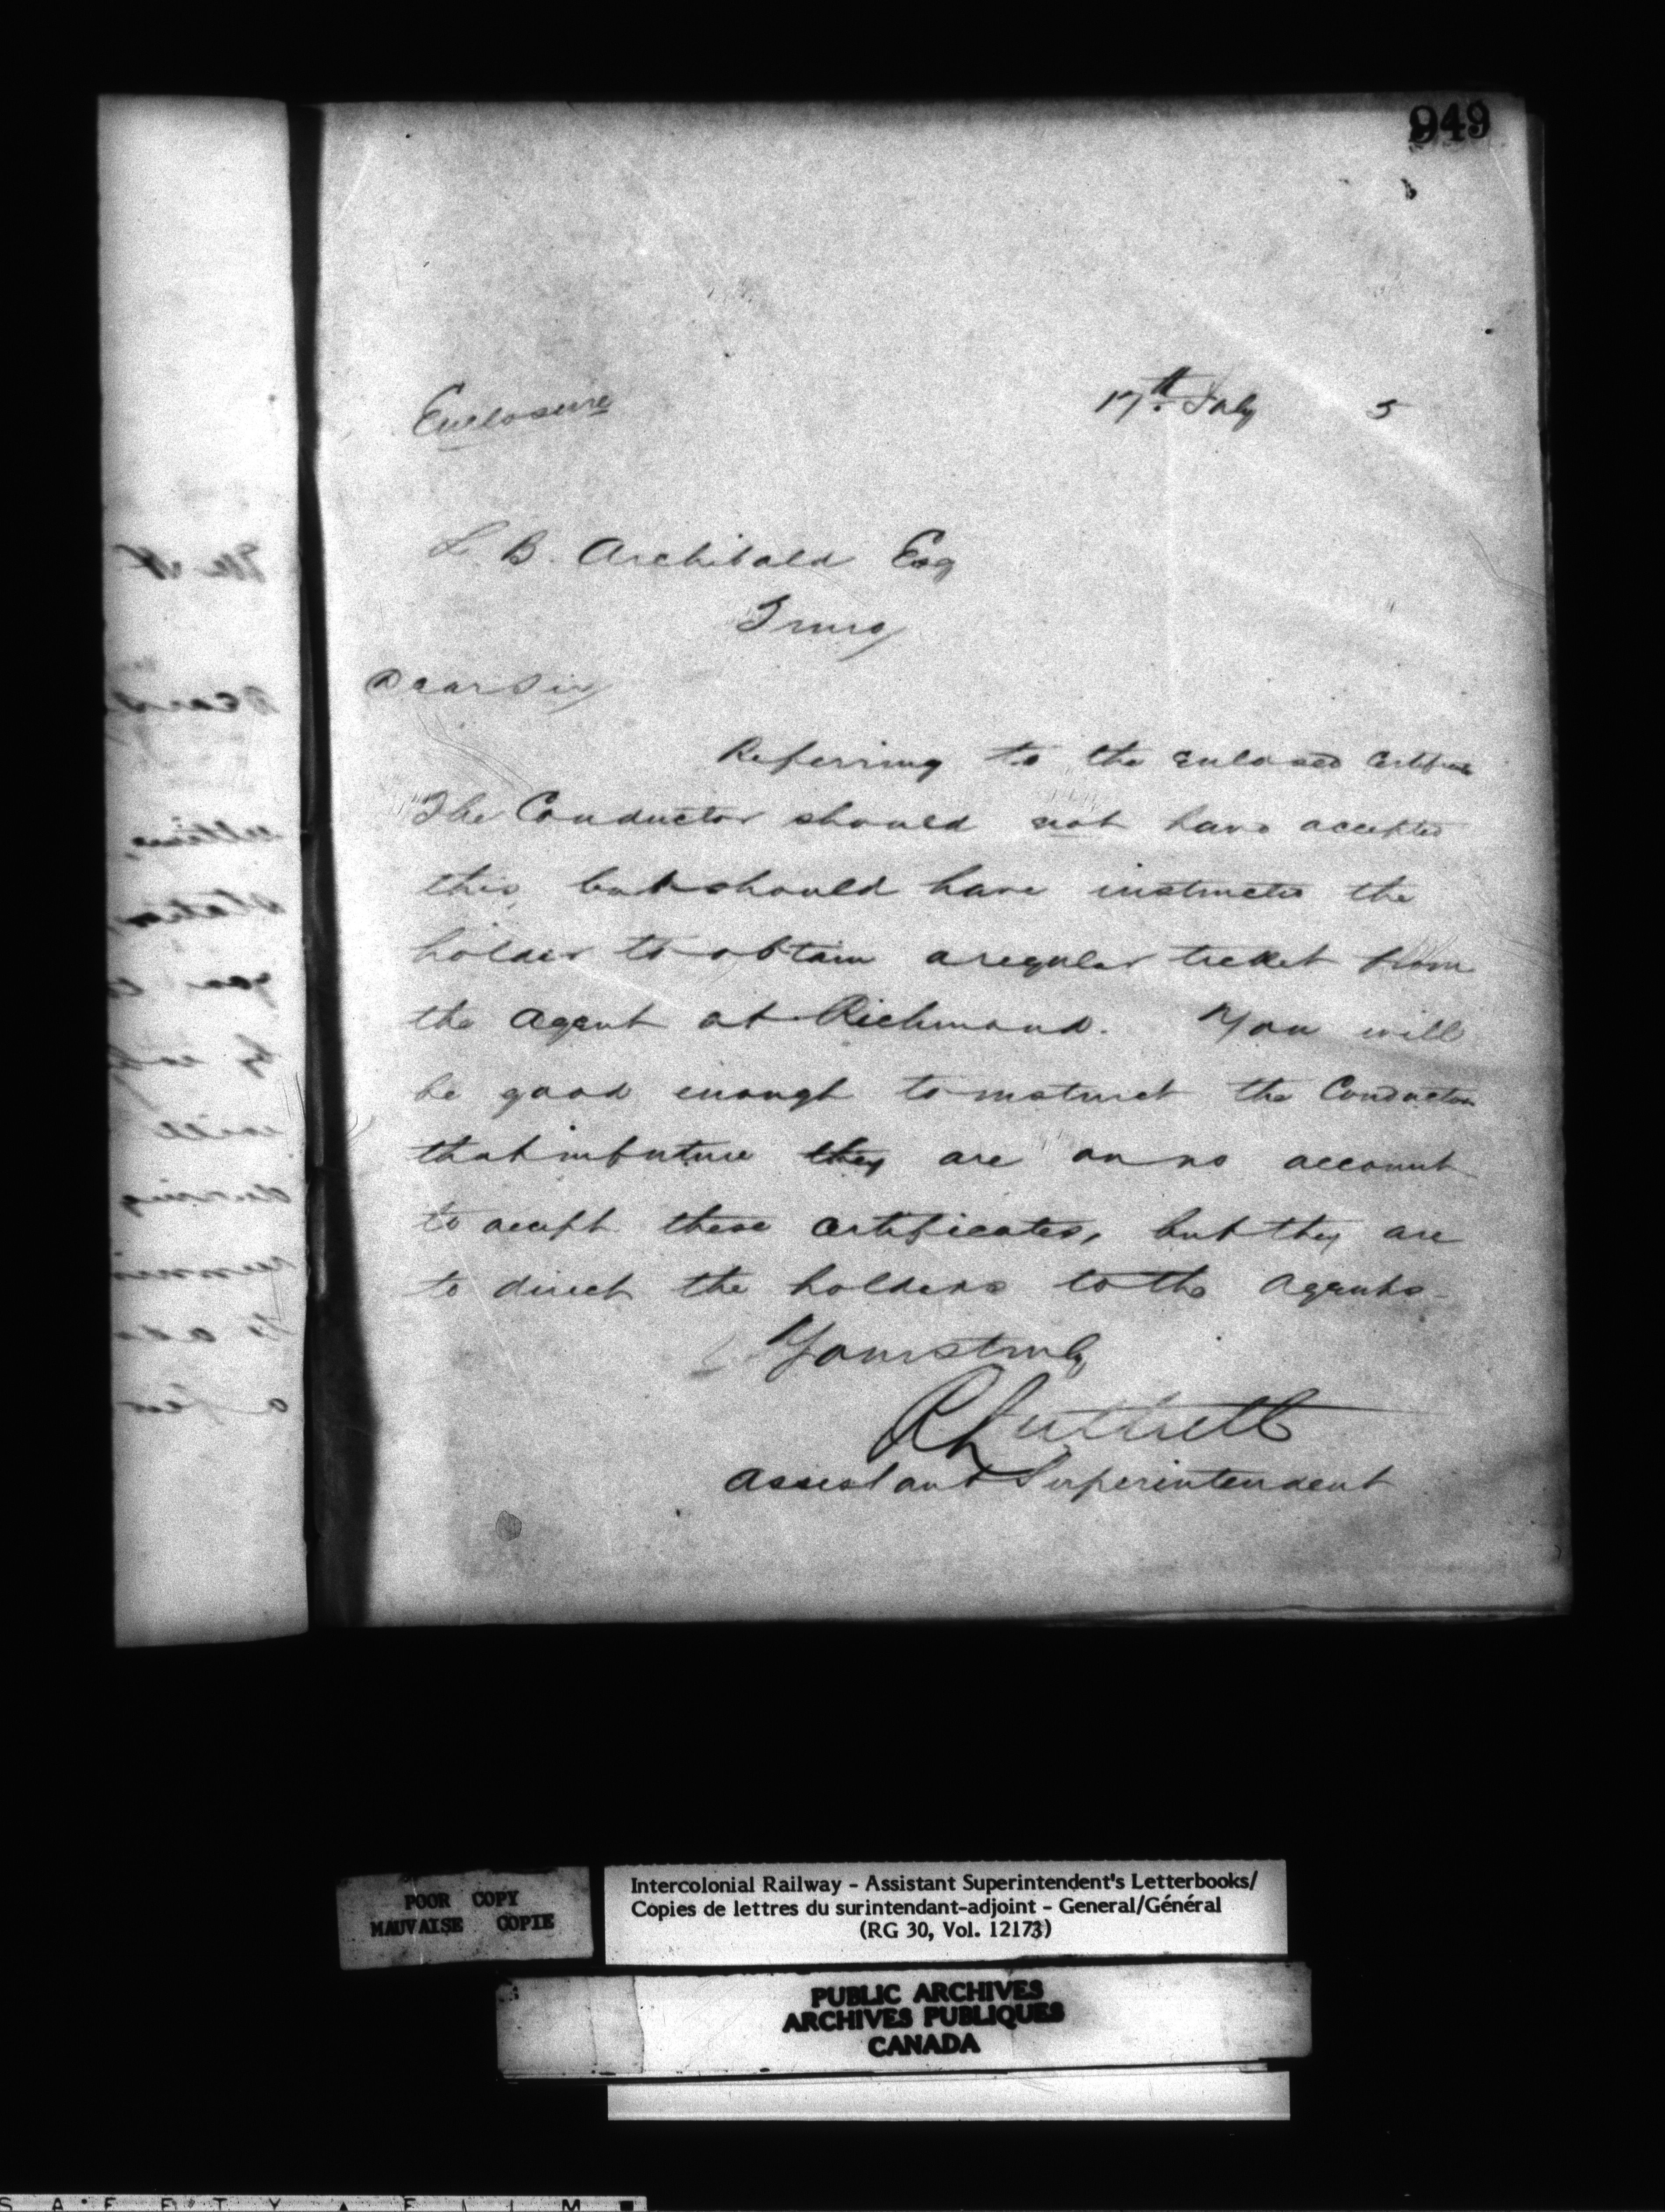 949
Enclosure
17th July 5
L. B. Archibald Esq
Truro
Dear Sir
Referring to the enlosed Certificate
The Conductor should not have accepted
this, but should have instructed the
holder to obtain a regular ticket from
the Agent at Richmond. You will
be good enough to instruct the Conductors
that in future they are on no account
to accept these certificates, but they are
to direct the holders to the Agents.
Yours truly
R Luttrell
Assistant Superintendent
POOR COPY
MAUVAISE COPIE
Intercolonial Railway - Assistant Superintendent's Letterbooks/
Copies de lettres du surintendant-adjoint - General/Général
(RG 30, Vol. 12173)
PUBLIC ARCHIVES
ARCHIVES PUBLIQUES
CANADA
SAFETY FILM